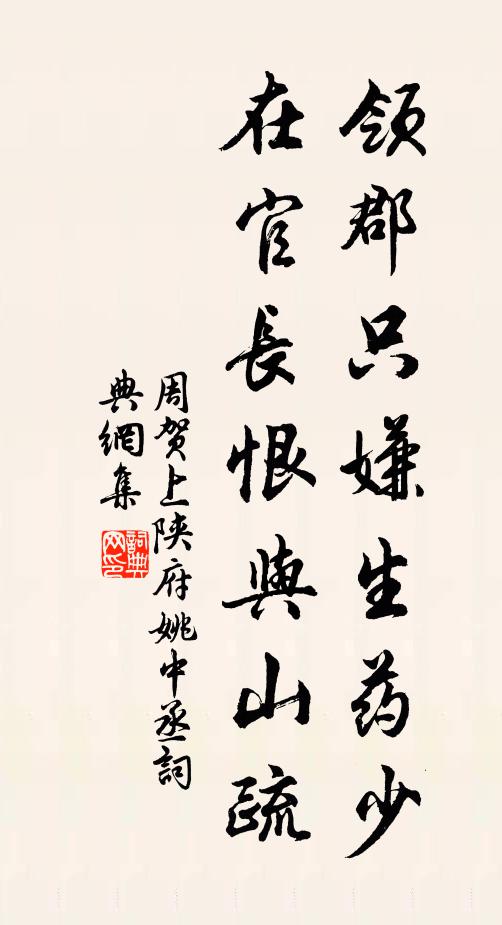 领郡只嫌生药少
在官長恨與山疏
周贺上陕府姚中丞詞
典網集
詞典
网印